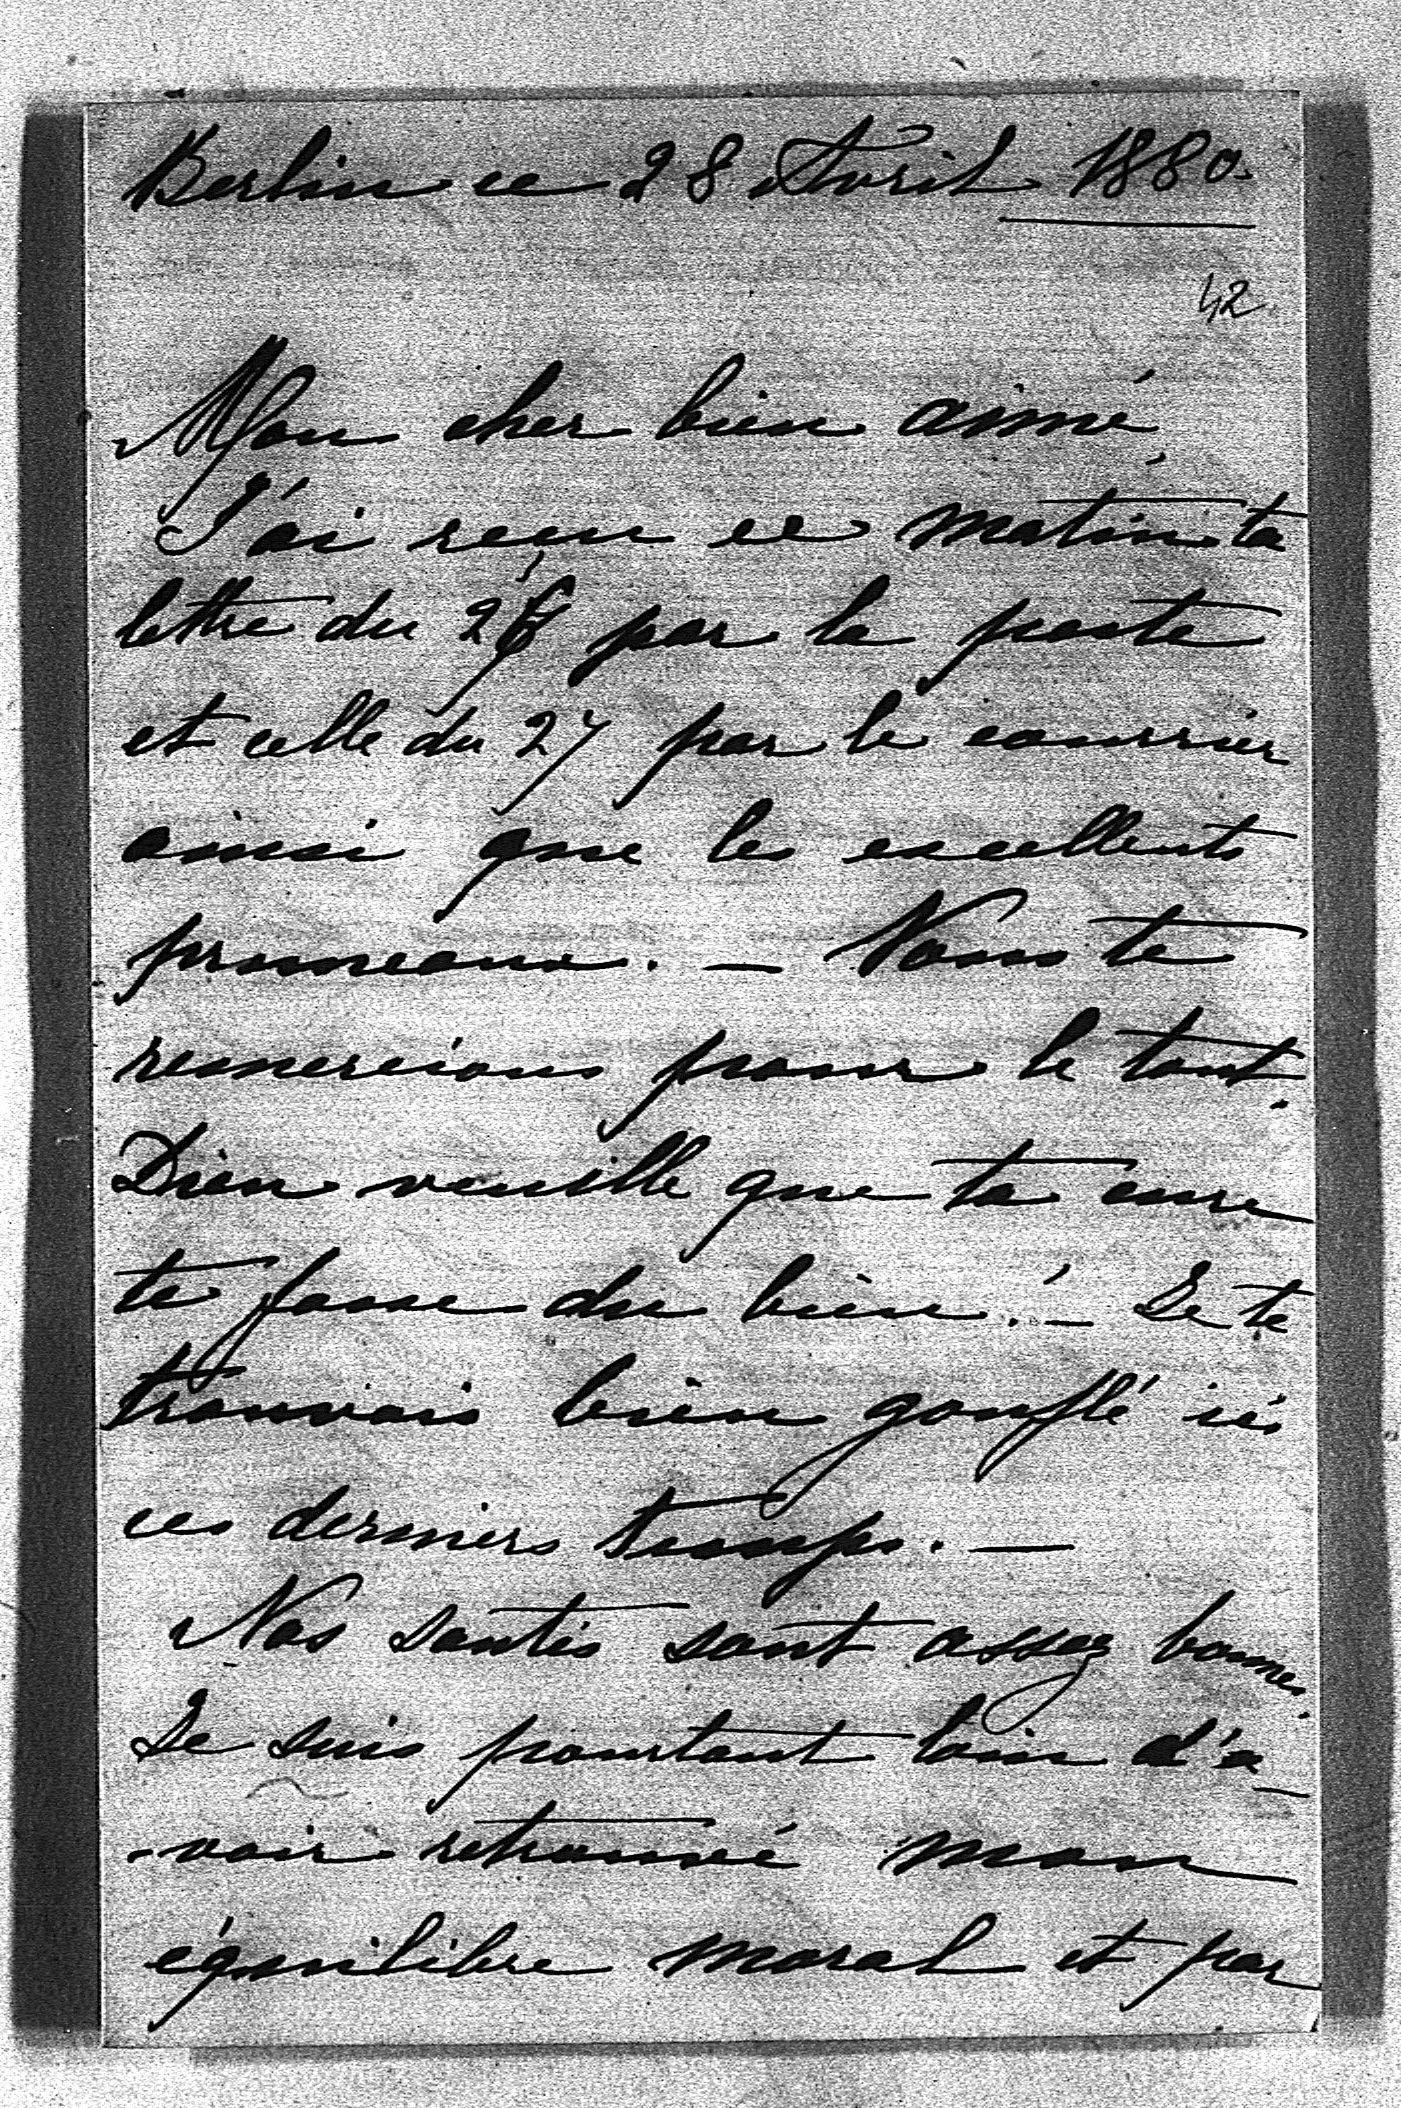 Berlin ce 28 Avril 1880.
42
Mon cher bien aimé,
J'ai reçu ce matin ta
lettre du 26 par la poste
et celle du 27 par le courrier
ainsi que les excellents
pruneaux. — Nous te
remercions pour le tout.
Dieu veuille que ta cure
te fasse du bien! — Je te
trouvais bien gonflé ici
ces derniers temps. —
Nos santés sont assez bonnes.
Je suis pourtant loin d'a-
-voir retrouvé mon
équilibre moral et par